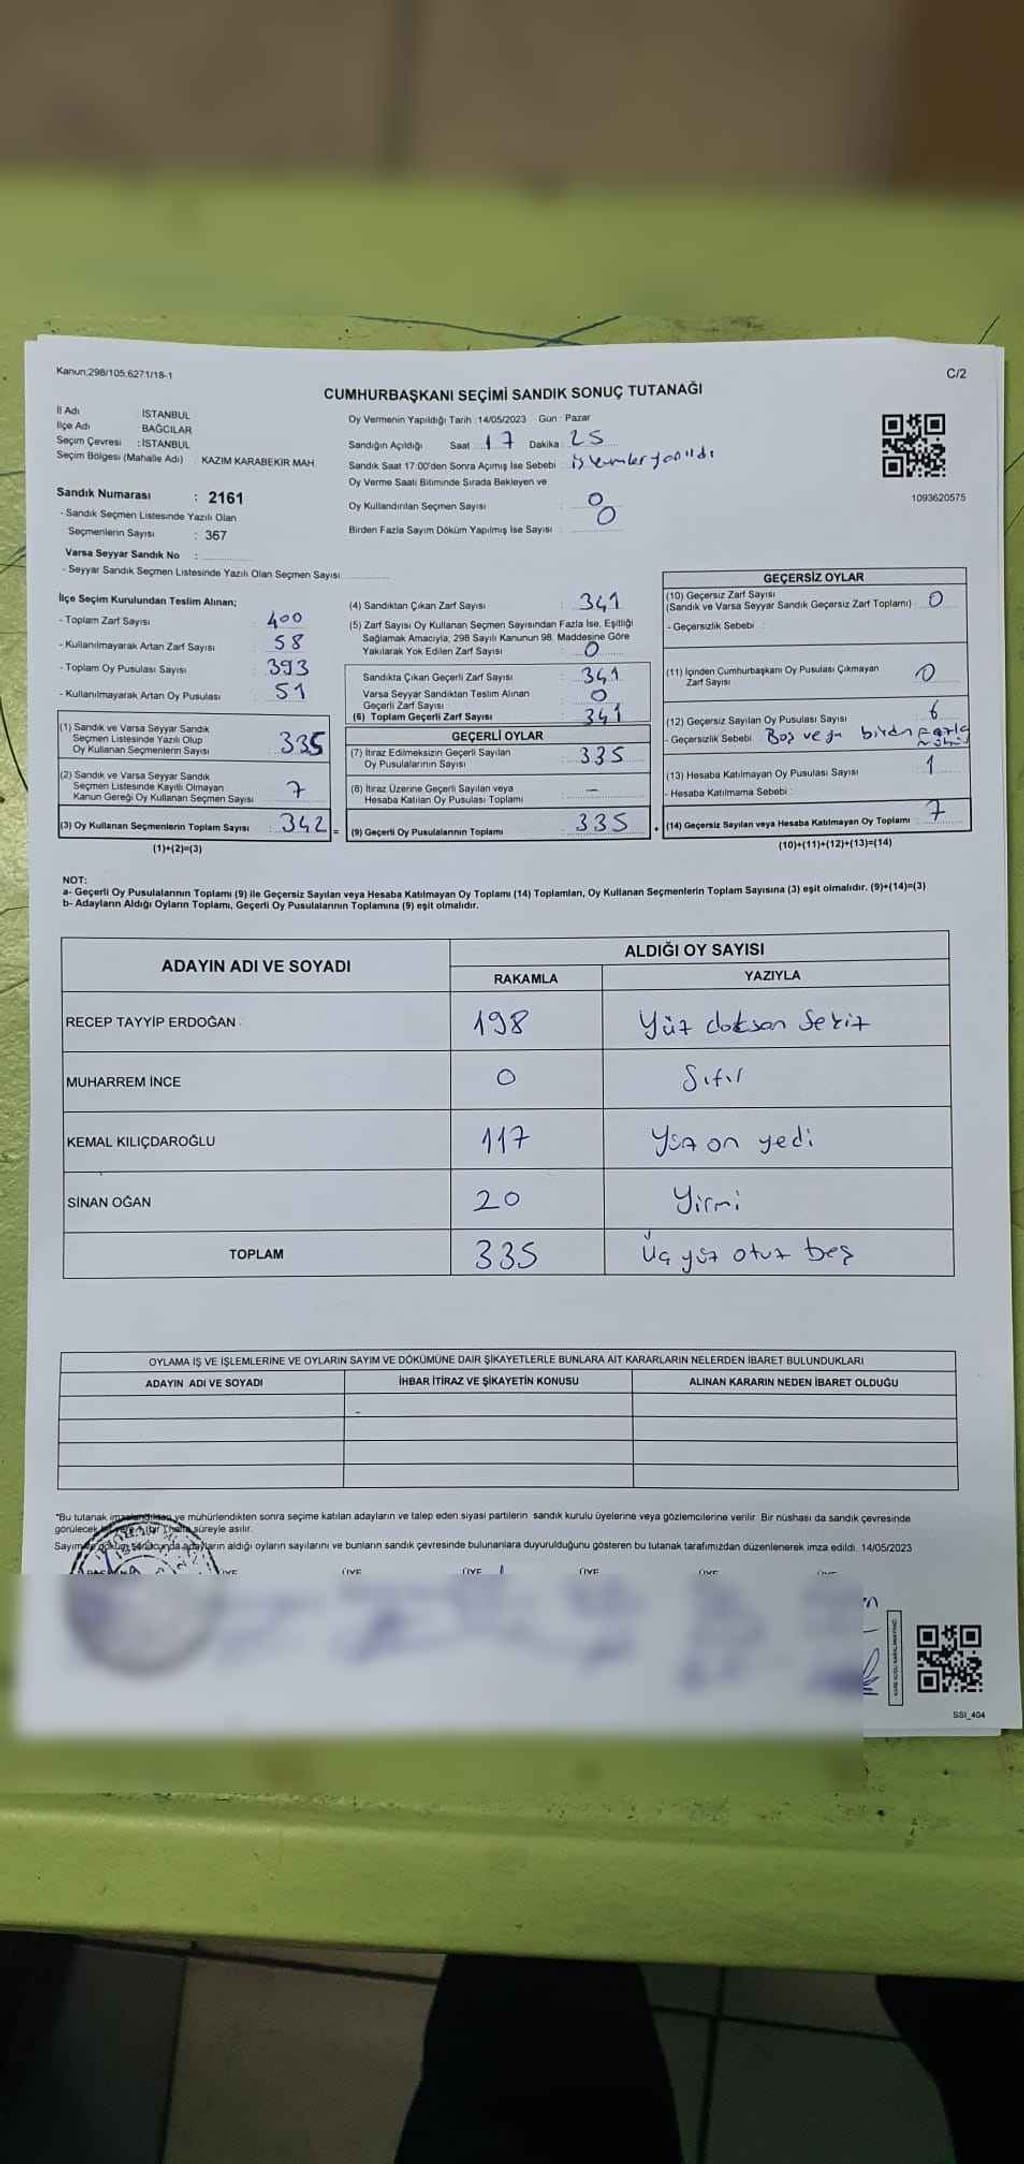 Kanun:298/105,6271/18-1
C/2
CUMHURBAŞKANI SEÇİMİ SANDIK SONUÇ TUTANAĞI
İl Adı İSTANBUL
İlçe Adı BAĞCILAR
Seçim Çevresi : İSTANBUL
Seçim Bölgesi (Mahalle Adı) KAZIM KARABEKİR MAH.
Oy Vermenin Yapıldığı Tarih : 14/05/2023 Gün : Pazar
Sandığın Açıldığı Saat 17 Dakika : 25
Sandık Saat 17:00'den Sonra Açımış İse Sebebi işlemler yapıldı
Oy Verme Saati Bitiminde Sırada Bekleyen ve
Oy Kullandırılan Seçmen Sayısı : 0
Birden Fazla Sayım Döküm Yapılmış İse Sayısı : 0
1093620575
Sandık Numarası : 2161
- Sandık Seçmen Listesinde Yazılı Olan
Seçmenlerin Sayısı : 367
Varsa Seyyar Sandık No :
- Seyyar Sandık Seçmen Listesinde Yazılı Olan Seçmen Sayısı:
İlçe Seçim Kurulundan Teslim Alınan;
- Toplam Zarf Sayısı : 400
- Kullanılmayarak Artan Zarf Sayısı : 58
- Toplam Oy Pusulası Sayısı : 393
- Kullanılmayarak Artan Oy Pusulası : 51
(1) Sandık ve Varsa Seyyar Sandık
Seçmen Listesinde Yazılı Olup
Oy Kullanan Seçmenlerin Sayısı : 335
(2) Sandık ve Varsa Seyyar Sandık
Seçmen Listesinde Kayıtlı Olmayan
Kanun Gereği Oy Kullanan Seçmen Sayısı : 7
(3) Oy Kullanan Seçmenlerin Toplam Sayısı : 342 =
(1)+(2)=(3)
(4) Sandıktan Çıkan Zarf Sayısı : 341
(5) Zarf Sayısı Oy Kullanan Seçmen Sayısından Fazla İse, Eşitliği
Sağlamak Amacıyla, 298 Sayılı Kanunun 98. Maddesine Göre
Yakılarak Yok Edilen Zarf Sayısı : 0
Sandıkta Çıkan Geçerli Zarf Sayısı : 341
Varsa Seyyar Sandıktan Teslim Alınan
Geçerli Zarf Sayısı : 0
(6) Toplam Geçerli Zarf Sayısı : 341
GEÇERLİ OYLAR
(7) İtiraz Edilmeksizin Geçerli Sayılan
Oy Pusulalarının Sayısı : 335
(8) İtiraz Üzerine Geçerli Sayılan veya
Hesaba Katılan Oy Pusulası Toplamı : —
(9) Geçerli Oy Pusulalarının Toplamı : 335 +
GEÇERSİZ OYLAR
(10) Geçersiz Zarf Sayısı
(Sandık ve Varsa Seyyar Sandık Geçersiz Zarf Toplamı) : 0
- Geçersizlik Sebebi :
(11) İçinden Cumhurbaşkanı Oy Pusulası Çıkmayan
Zarf Sayısı : 0
(12) Geçersiz Sayılan Oy Pusulası Sayısı : 6
- Geçersizlik Sebebi : Boş veya birden fazla
mühür
(13) Hesaba Katılmayan Oy Pusulası Sayısı : 1
- Hesaba Katılmama Sebebi :
(14) Geçersiz Sayılan veya Hesaba Katılmayan Oy Toplamı : 7
(10)+(11)+(12)+(13)=(14)
NOT:
a- Geçerli Oy Pusulalarının Toplamı (9) ile Geçersiz Sayılan veya Hesaba Katılmayan Oy Toplamı (14) Toplamları, Oy Kullanan Seçmenlerin Toplam Sayısına (3) eşit olmalıdır. (9)+(14)=(3)
b- Adayların Aldığı Oyların Toplamı, Geçerli Oy Pusulalarının Toplamına (9) eşit olmalıdır.
ADAYIN ADI VE SOYADI
ALDIĞI OY SAYISI
RAKAMLA YAZIYLA
RECEP TAYYİP ERDOĞAN 198 Yüz doksan sekiz
MUHARREM İNCE 0 Sıfır
KEMAL KILIÇDAROĞLU 117 Yüz on yedi
SİNAN OĞAN 20 Yirmi
TOPLAM 335 Üç yüz otuz beş
OYLAMA İŞ VE İŞLEMLERİNE VE OYLARIN SAYIM VE DÖKÜMÜNE DAİR ŞİKAYETLERLE BUNLARA AİT KARARLARIN NELERDEN İBARET BULUNDUKLARI
ADAYIN ADI VE SOYADI İHBAR İTİRAZ VE ŞİKAYETİN KONUSU ALINAN KARARIN NEDEN İBARET OLDUĞU
-
*Bu tutanak ve mühürlendikten sonra seçime katılan adayların ve talep eden siyasi partilerin sandık kurulu üyelerine veya gözlemcilerine verilir. Bir nüshası da sandık çevresinde
görülecek bir hafta süreyle asılır.
Sayım döküm sonucunda adayların aldığı oyların sayılarını ve bunların sandık çevresinde bulunanlara duyurulduğunu gösteren bu tutanak tarafımızdan düzenlenerek imza edildi. 14/05/2023
ÜYE ÜYE ÜYE ÜYE
SSI_404